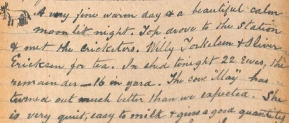 A very fine warm day & a beautiful calm
moon let night. Top drove to the Station
& met the cricketers. Willy Torkelsen & Oliver
Ericksen for tea. In shed tonight 22 Ewes, the
remainder 16 in yard. The cow "May" has
turned out much better than we expected. She
is very quiet, easy to milk & gives a good quantity